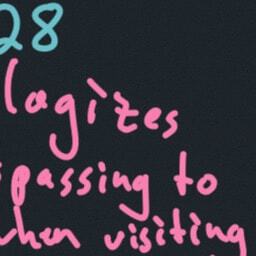 28
logizes
passing to
when visiting